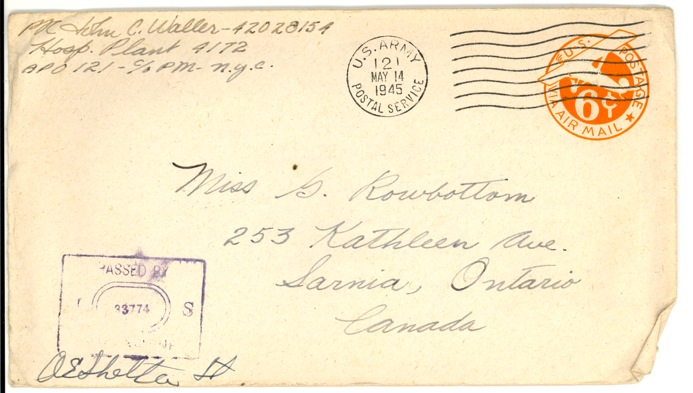 Pvt John C. Waller - 42028154
Hosp. Plant 4172
APO 121 - c/o PM - n.y.c.
U.S. ARMY
121
MAY 14
1945
POSTAL SERVICE
U.S. POSTAGE
6¢
VIA AIR MAIL
Miss G. Rowbottom
253 Kathleen Ave.
Sarnia, Ontario
Canada
PASSED BY
33774 S